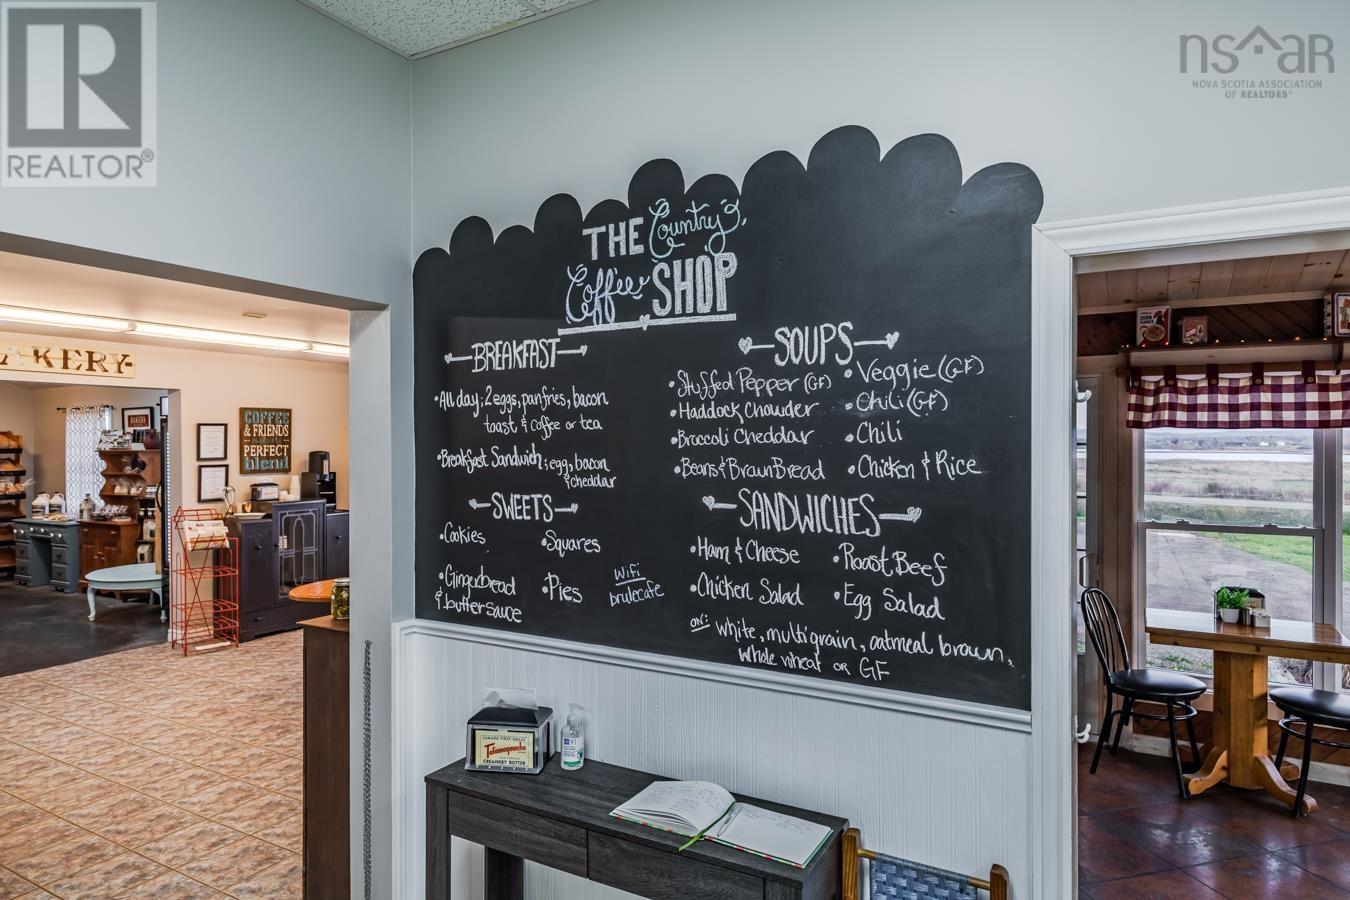 REALTOR®
nsar
NOVA SCOTIA ASSOCIATION
OF REALTORS®
THE Country
Coffee SHOP
BREAKFAST
• All day; 2 eggs, panfries, bacon
toast & coffee or tea
• Breakfast Sandwich; egg, bacon
& cheddar
SWEETS
• Cookies
• Squares
• Gingerbread
& butter sauce
• Pies
WiFi
brulecafe
SOUPS
• Stuffed Pepper (GF)
• Haddock Chowder
• Broccoli Cheddar
• Beans & Brown Bread
• Veggie (GF)
• Chili (GF)
• Chili
• Chicken & Rice
SANDWICHES
• Ham & Cheese
• Roast Beef
• Chicken Salad
• Egg Salad
on: white, multigrain, oatmeal brown,
Whole wheat or GF
AKERY
COFFEE
& FRIENDS
PERFECT
blend
CANADA FIRST GRADE
Tatamagouche
CREAMERY BUTTER